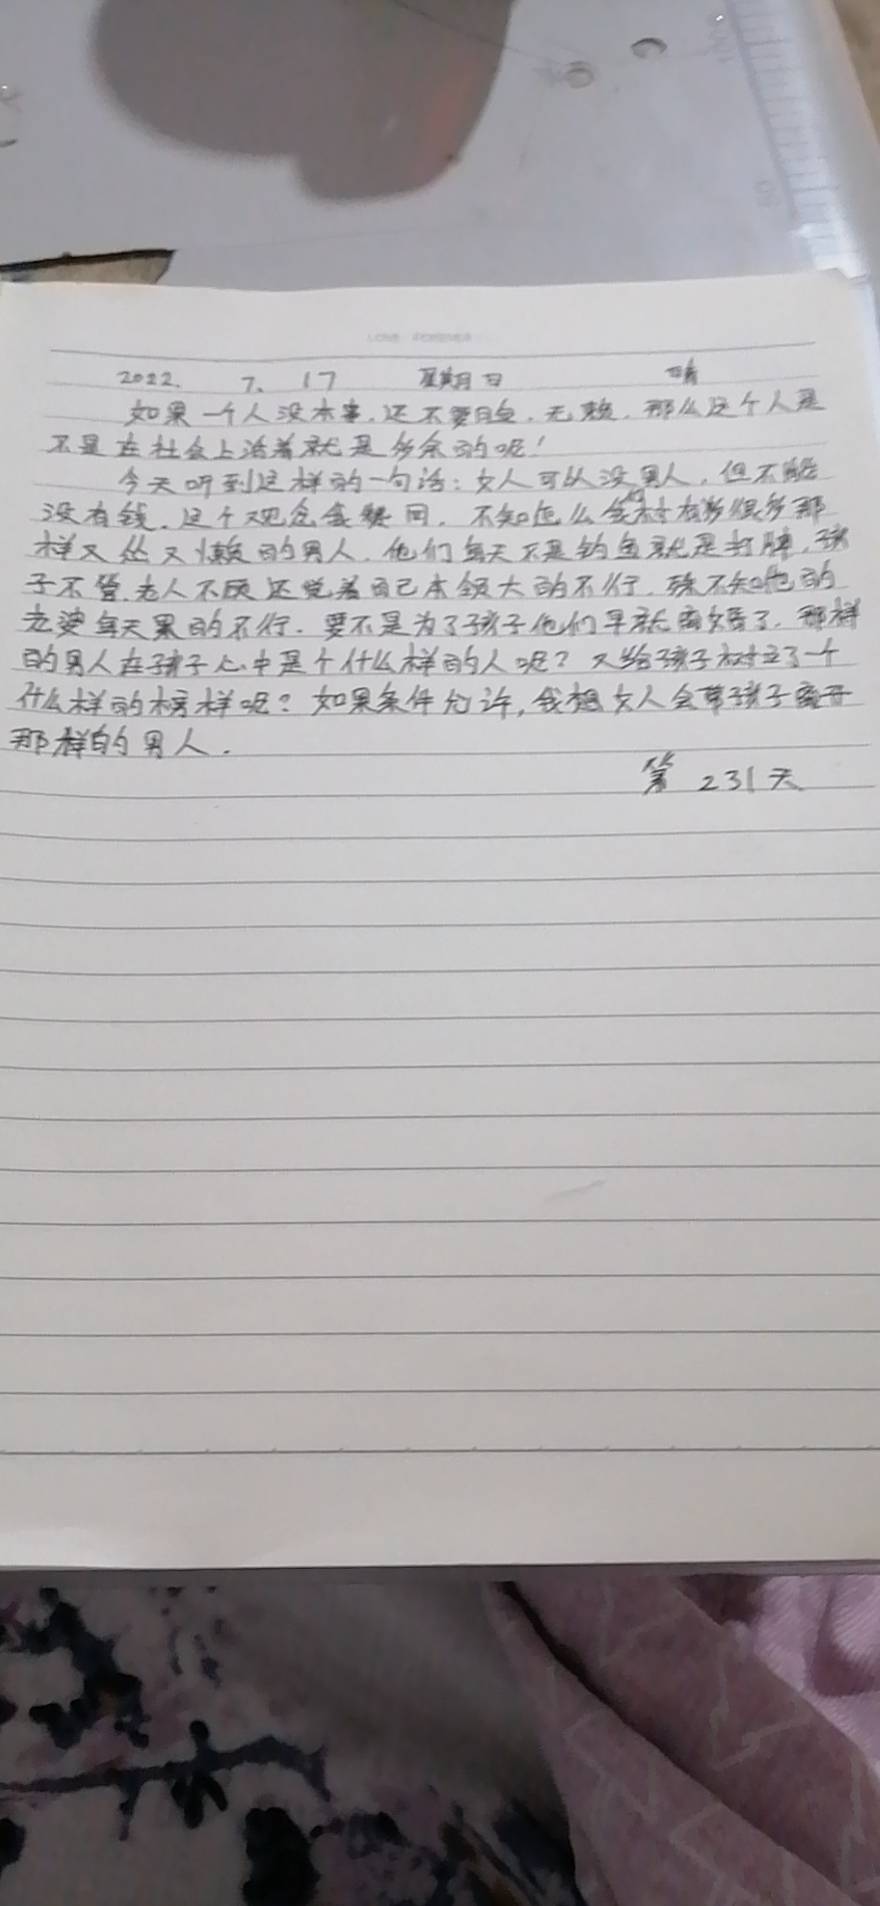 LOVE FOREVER
2022. 7. 17 星期日 晴
如果一个人没本事，还不要脸，无赖，那么这个人是
不是在社会上活着就是多余的呢！
今天听到这样的一句话：女人可以没男人，但不能
没有钱．这个观念我赞同．不知怎么我村有很多那
样又怂又懒的男人．他们每天不是钓鱼就是打牌，孩
子不管．老人不顾还觉着自己本领大的不行．殊不知他的
老婆每天累的不行．要不是为了孩子他们早就离婚了．那样
的男人在孩子心中是个什么样的人呢？又给孩子树立了一个
什么样的榜样呢？如果条件允许，我想女人会带孩子离开
那样的男人．
第 231天